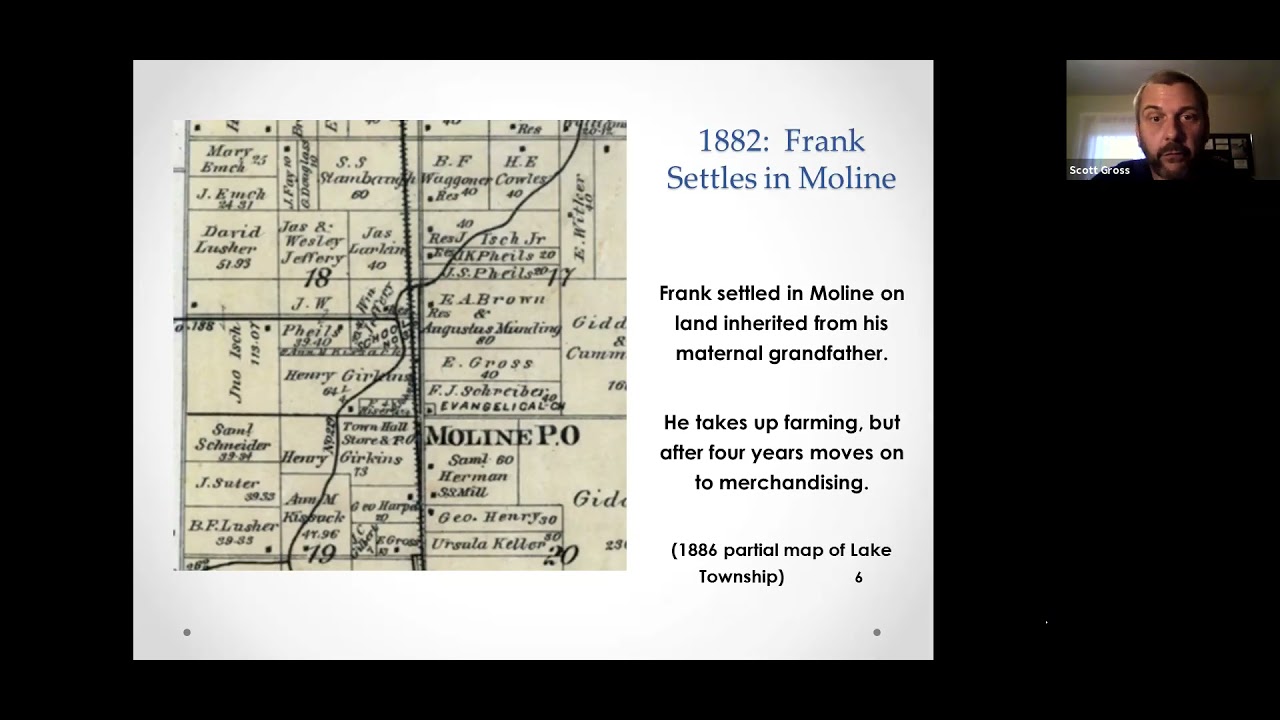 1882: Frank
Settles in Moline
Frank settled in Moline on
land inherited from his
maternal grandfather.
He takes up farming, but
after four years moves on
to merchandising.
(1886 partial map of Lake
Township)
6
Scott Gross
Res
Mary 25
Emch
J. Fay 10
G. Douglass
S.S
Stambaugh
60
B. F
Waggoner
Res 40
H. E
Cowles
40
J. Emch
24.31
E. Witker
40
David
Lusher
51.93
Jas &
Wesley
Jeffery
18
Jas
Larkin
40
40
Res J. Isch Jr
Pheils 20
J.S. Pheils 20
17
J. W
Pheils
39.40
E. A. Brown
Res &
Augustus Munding
80
.188
Jno Isch
113.07
Henry Girkins
64
E. Gross
40
F. J. Schreiber 40
EVANGELICAL CH
Saml
Schneider
39.34
Town Hall
Store & P.O
Henry Girkins
73
MOLINE P.O
Saml 60
Herman
S.S Mill
J. Suter
39.33
Ann M
Kissack
47.96
Geo Harpel
20
Geo. Henry 30
B.F. Lusher
39.33
19
E Gross
Ursula Keller 30
20